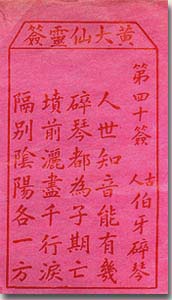 黃大仙靈簽
第四十簽
古人伯牙碎琴
人世知音能有幾
碎琴都為子期亡
墳前灑盡千行淚
隔別陰陽各一方